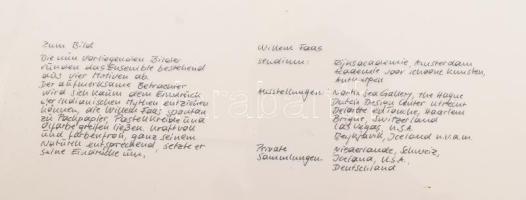 Zum Bild
Die nun vorliegenden Bilder
runden das Ensemble bestehend
aus vier Motiven ab.
Der aufmerksame Betrachter
wird sich kaum dem Eindruck
der indianischen Mythen entziehen
können, die Willem Faas spontan
zu Packpapier, Pastellkreide und
Ölfarbe greifen ließen. Kraftvoll
und farbenfroh, ganz seinem
Naturell entsprechend, setzte er
seine Eindrücke um.
Willem Faas
Studium: Rijksacademie, Amsterdam
Academie voor schoone kunsten,
Antwerpen
Ausstellungen: Martin Sea Gallery, The Hague
Dutch Design Center Utrecht
Deloitte Haarlem
Brigue, Switzerland
Las Vegas, U.S.A.
Reykjavik, Iceland u.v.a.m.
Private Niederlande, Schweiz,
Sammlungen: Iceland, U.S.A.,
Deutschland
darabanth